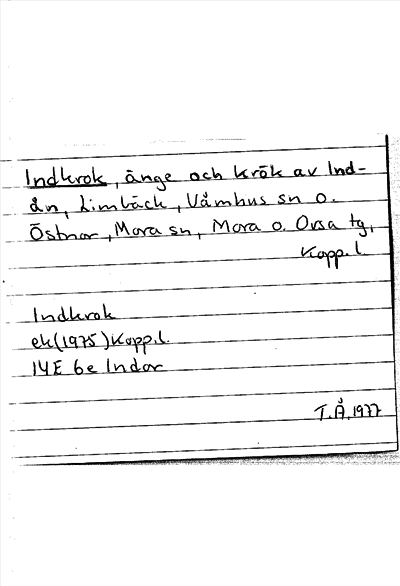 Indkrok, änge och krök av Ind-
ån, Limbäck, Våmhus sn o.
Östnor, Mora sn, Mora o. Orsa tg,
Kopp.l.
Indkrok
ek(1975)Kopp.l.
14E 6e Indor
T.Å, 1977